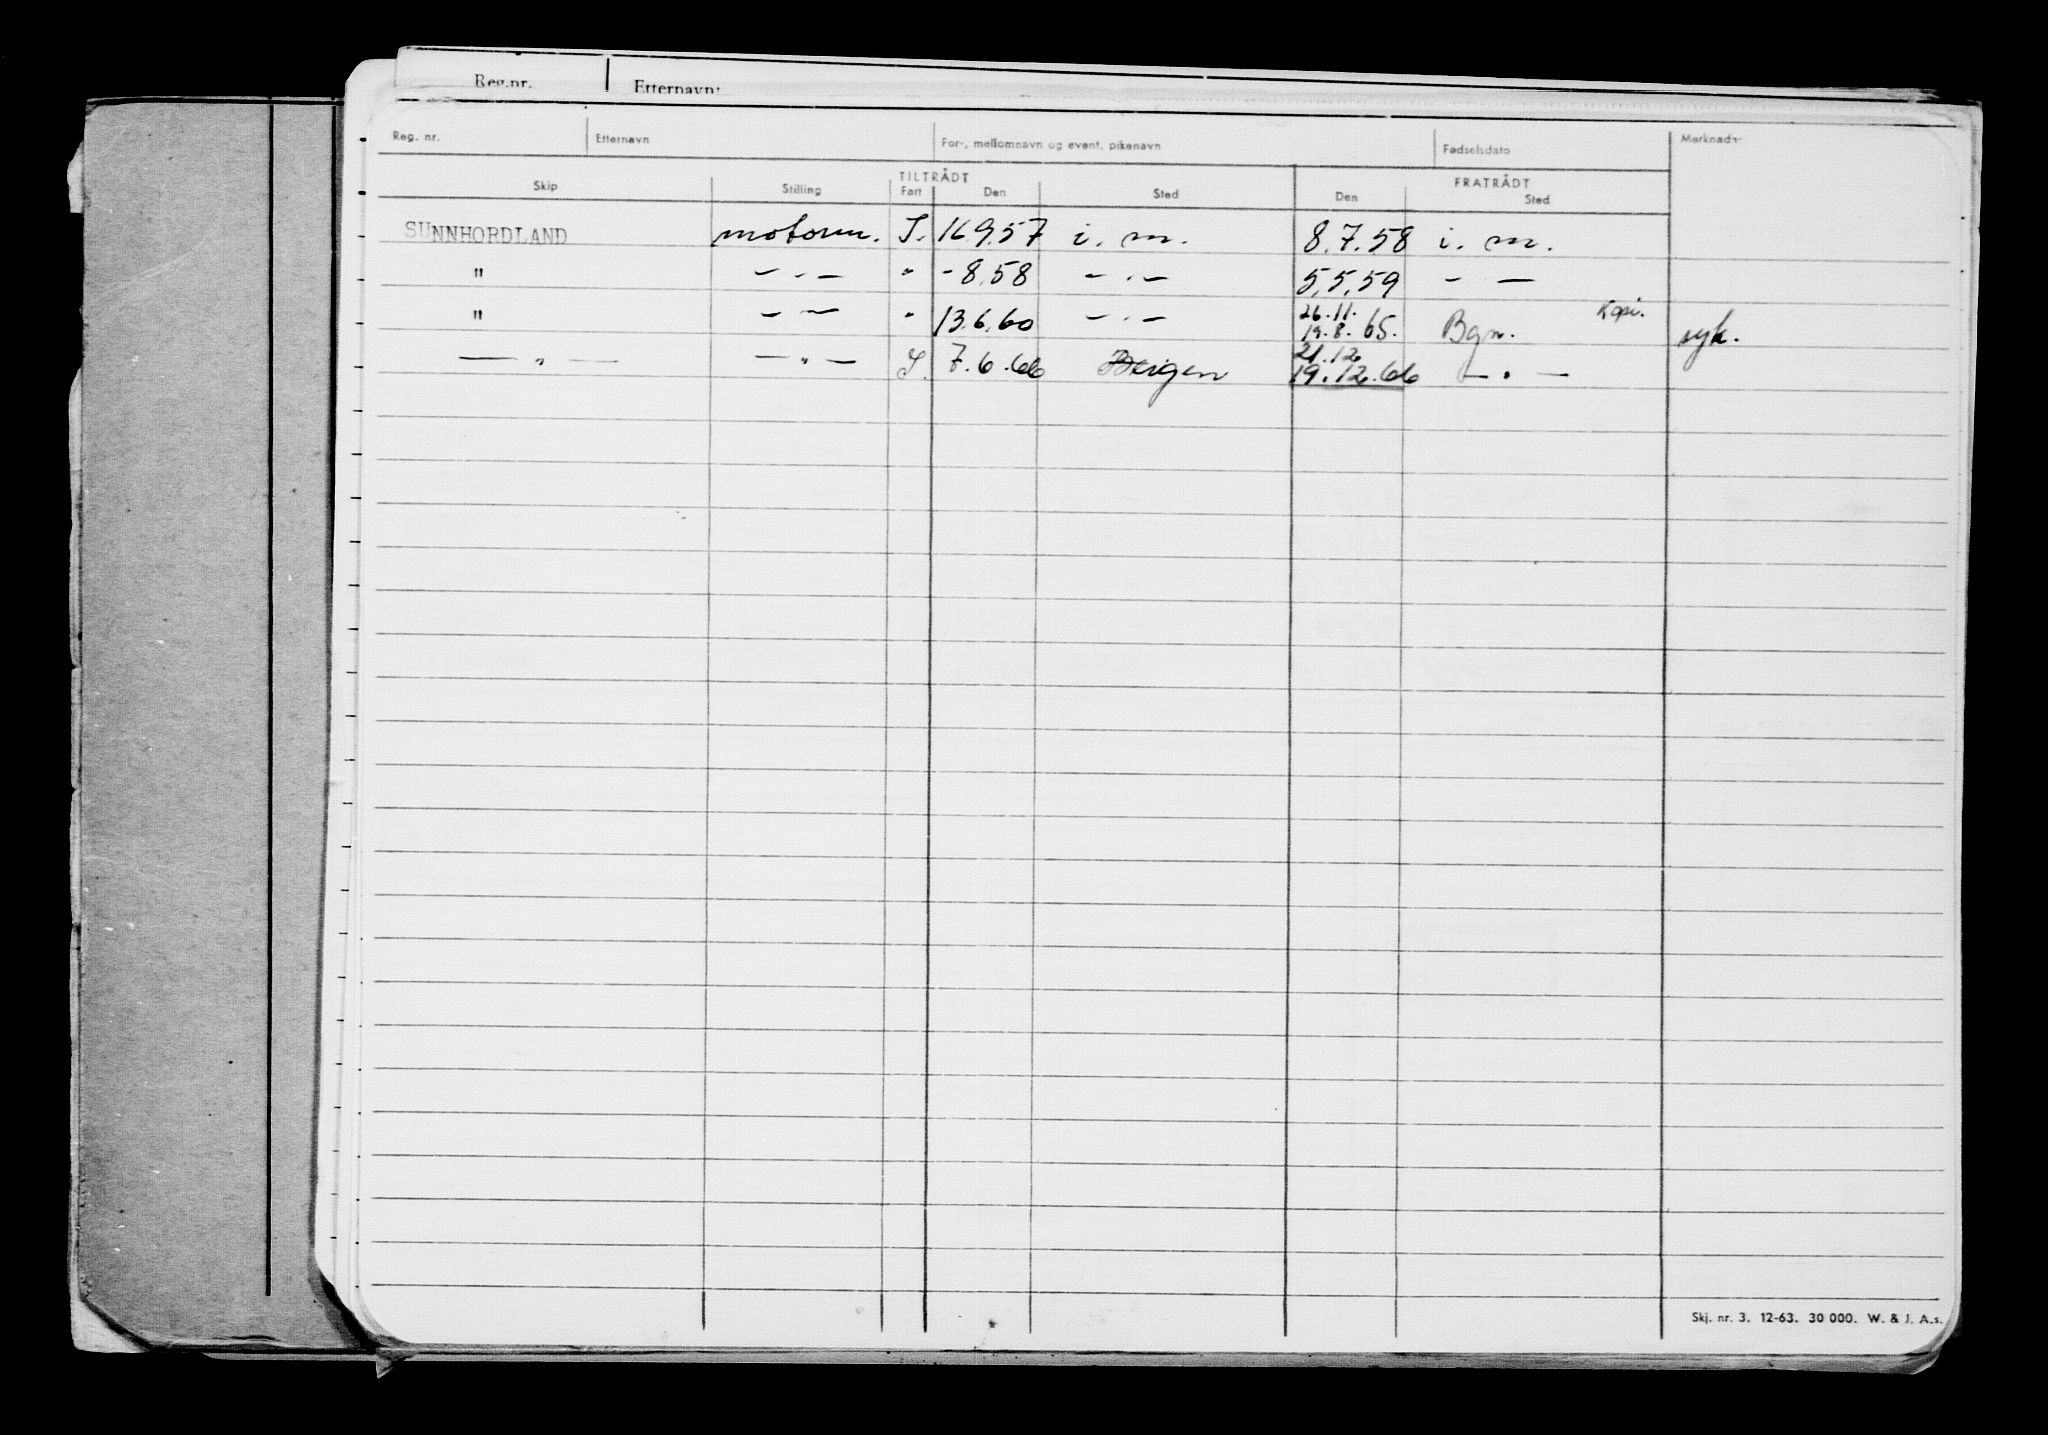 Reg.nr. Etternavn:
Reg. nr. Etternavn For-, mellomnavn og event. pikenavn Fødselsdato Merknader
TILTRÅDT FRATRÅDT
Skip Stilling Fart Den Sted Den Sted
SUNNHORDLAND motorm. I. 16.9.57 i. m. 8.7.58 i. m.
" — . — " - 8.58 — . — 5.5.59 — —
" — — " 13.6.60 — . — 26.11. Kopi.
19.8.65. Bgn. syk.
— " — — " — I. 7.6.66 Bergen 21.12
19.12.66 — . —
Skj. nr. 3. 12-63. 30 000. W. & J. A.s.